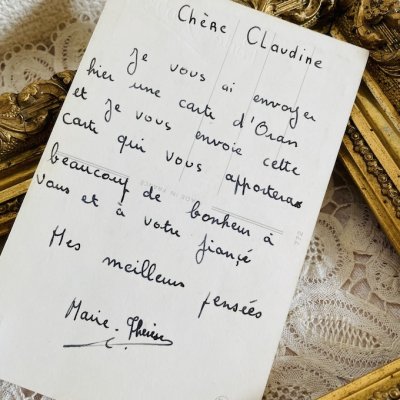 Chère Claudine
Je vous ai envoyer
hier une carte d'Oran
et je vous envoie cette
carte qui vous apportera
beaucoup de bonheur à
vous et à votre fiançé
Mes meilleurs pensées
Marie-Thérèse
772